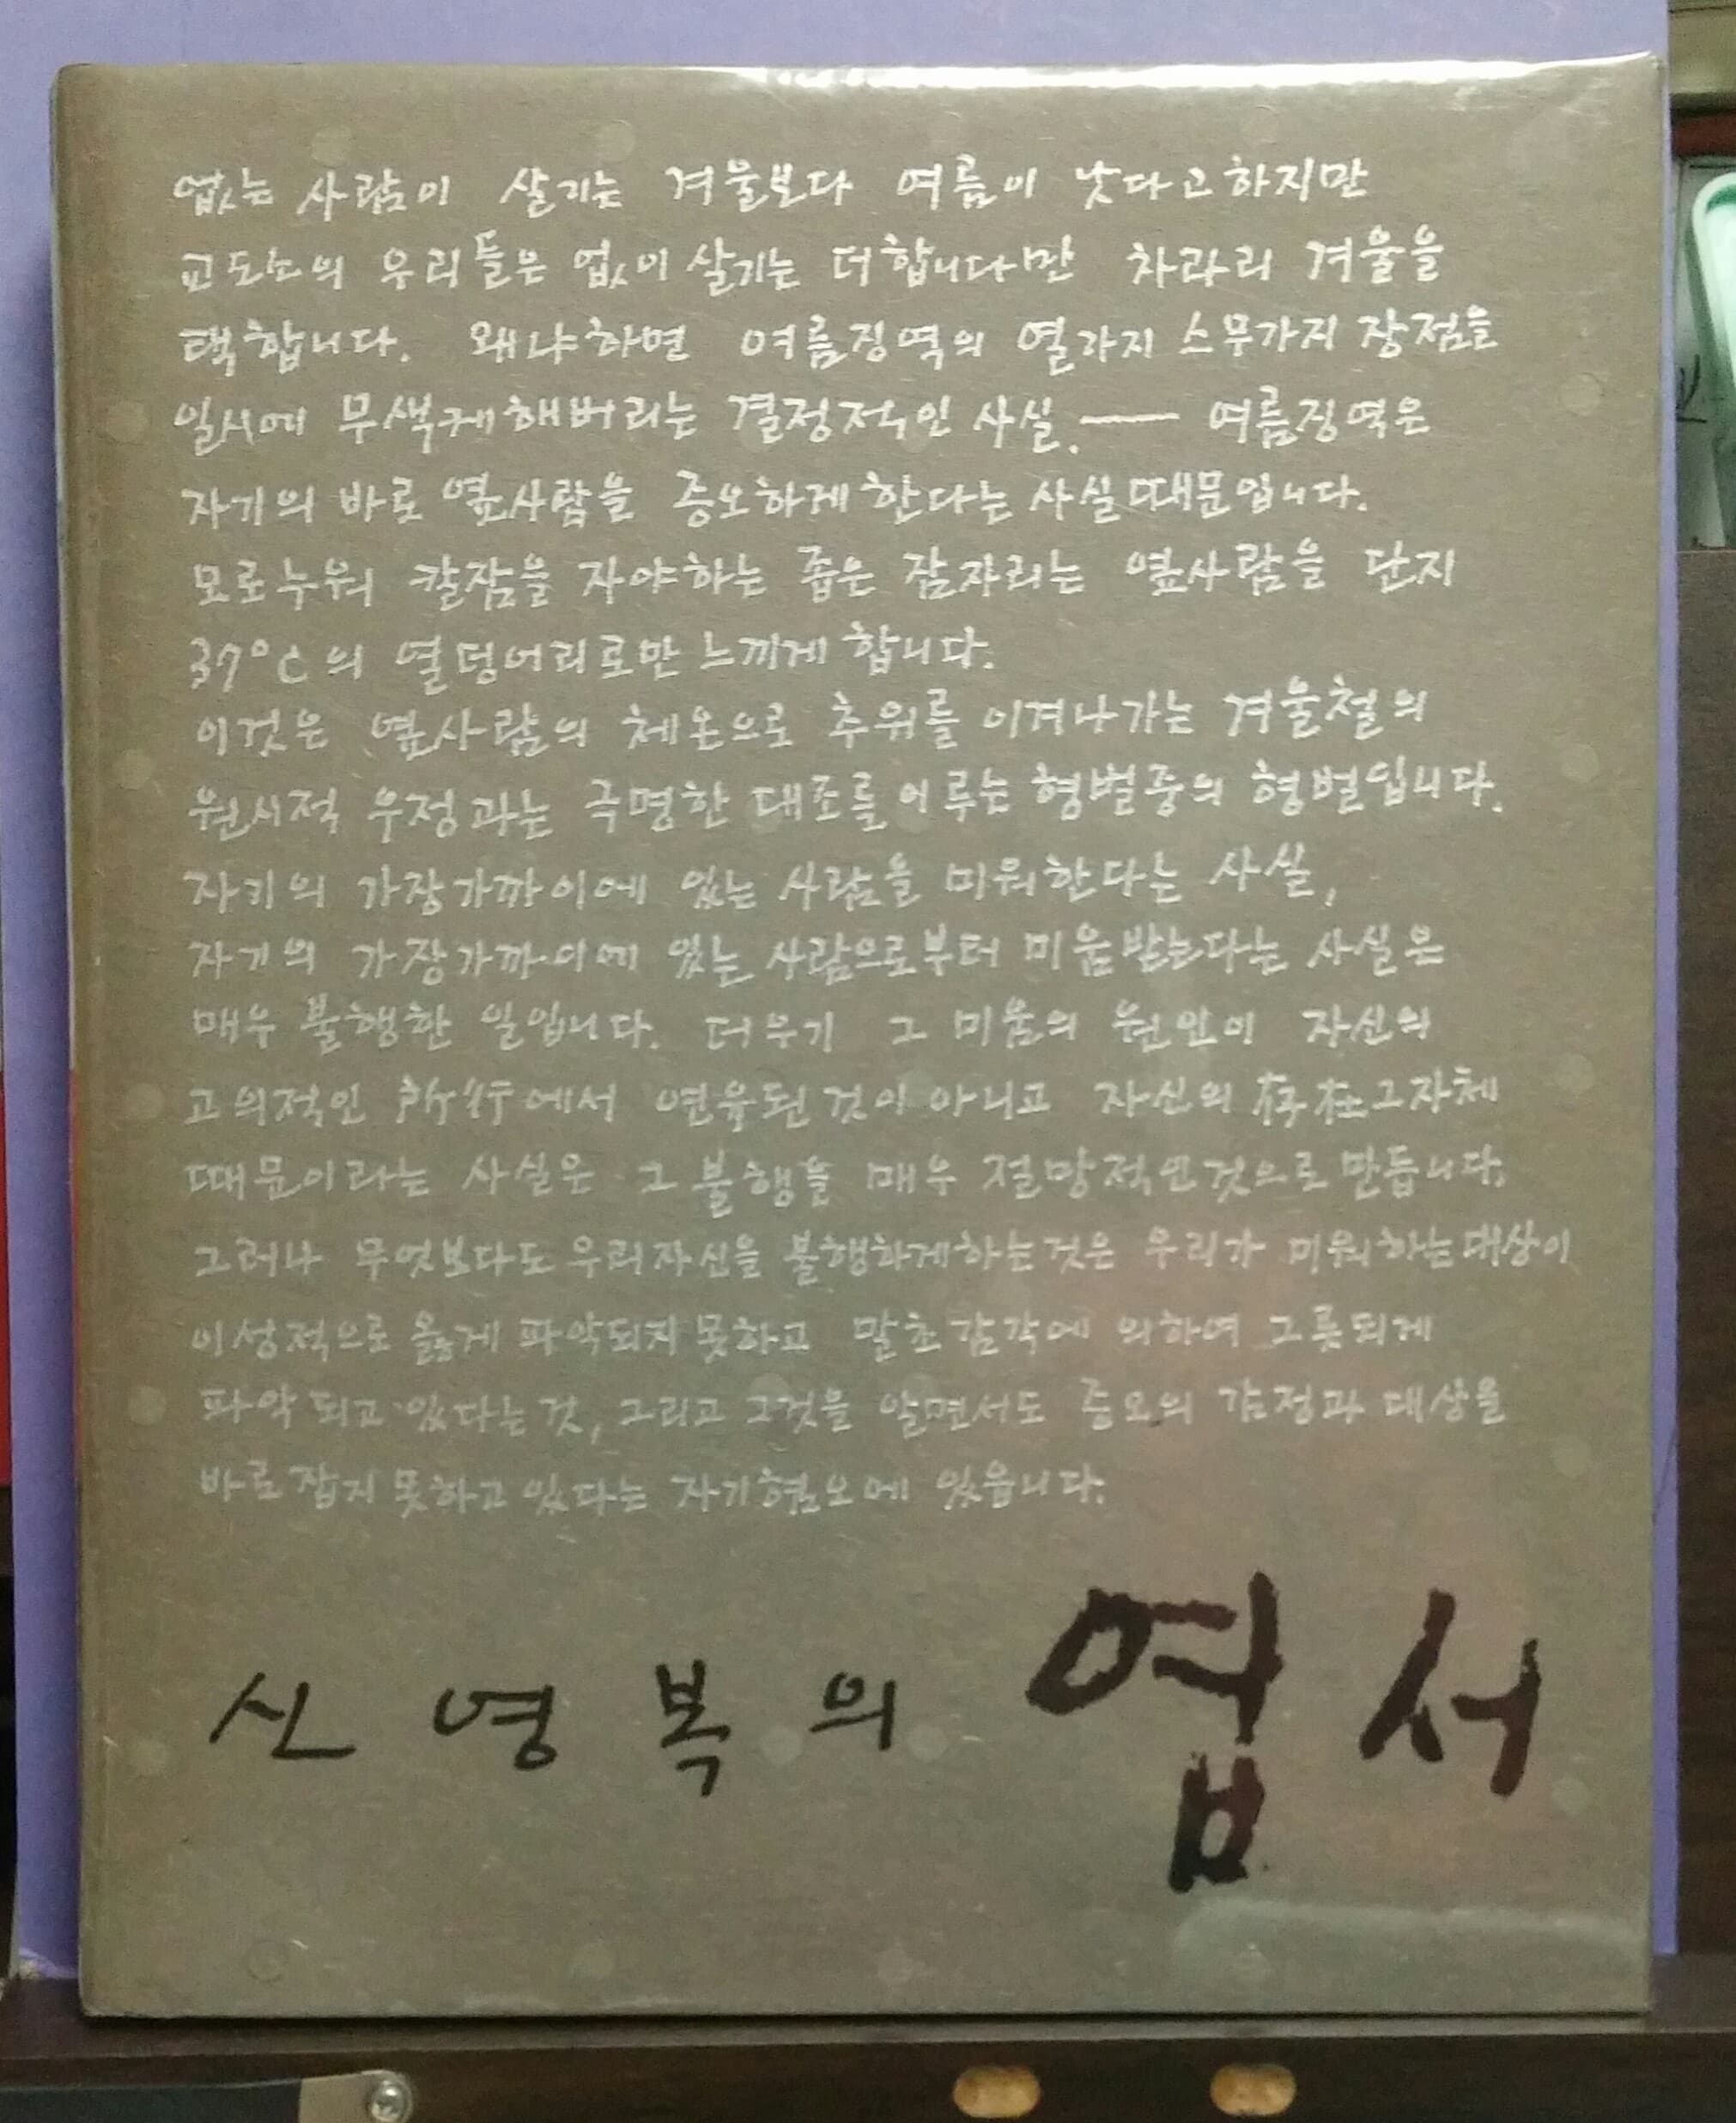 없는 사람이 살기는 겨울보다 여름이 낫다고하지만
교도소의 우리들은 없이 살기는 더합니다만 차라리 겨울을
택합니다. 왜냐하면 여름징역의 열가지 스무가지 장점을
일시에 무색케해버리는 결정적인 사실. ── 여름징역은
자기의 바로 옆사람을 증오하게 한다는 사실 때문입니다.
모로누워 칼잠을 자야하는 좁은 잠자리는 옆사람을 단지
37°C의 열덩어리로만 느끼게 합니다.
이것은 옆사람의 체온으로 추위를 이겨나가는 겨울철의
원시적 우정과는 극명한 대조를 이루는 형벌중의 형벌입니다.
자기의 가장가까이에 있는 사람을 미워한다는 사실,
자기의 가장가까이에 있는 사람으로부터 미움받는다는 사실은
매우 불행한 일입니다. 더우기 그 미움의 원인이 자신의
고의적인 所行에서 연유된 것이 아니고 자신의 存在 그자체
때문이라는 사실은 그 불행을 매우 절망적인것으로 만듭니다.
그러나 무엇보다도 우리자신을 불행하게하는것은 우리가 미워하는대상이
이성적으로 옳게 파악되지못하고 말초감각에 의하여 그릇되게
파악되고 있다는것, 그리고 그것을 알면서도 증오의 감정과 대상을
바로잡지 못하고 있다는 자기혐오에 있읍니다.
신영복의 엽서